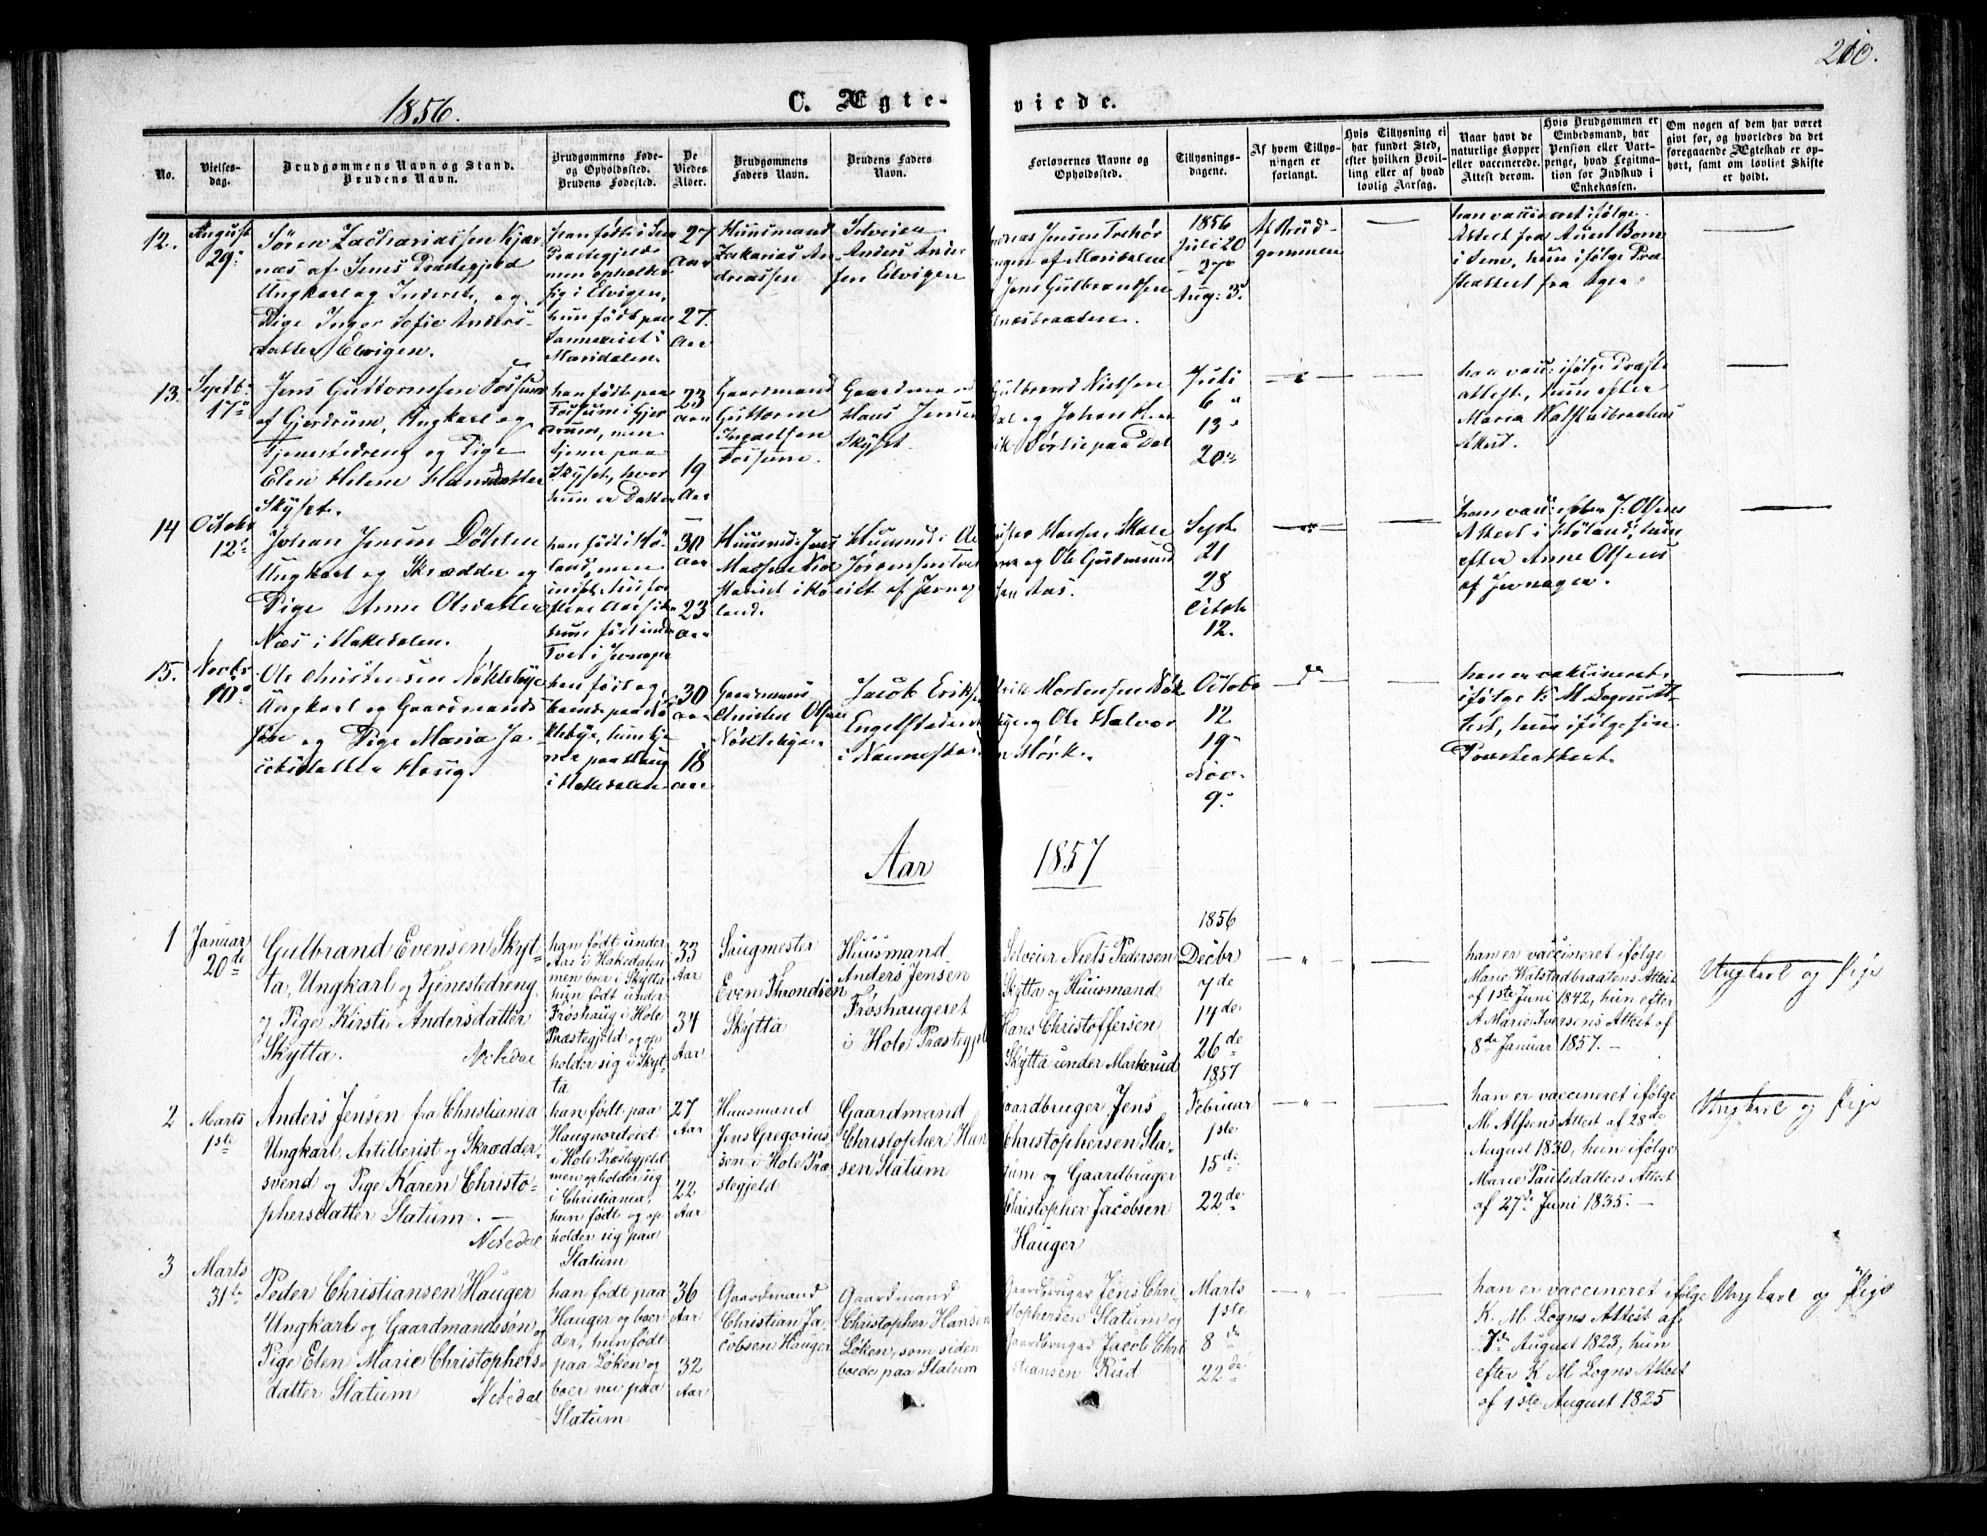 210.
1856.
C. Ægte-
viede.
No.
Vielses-
dag.
Brudgommens Navn og Stand.
Brudens Navn.
Brudgommens Føde-
og Opholdssted.
Brudens Fødested.
De
Viedes
Alder.
Brudgommens
Faders Navn.
Brudens Faders
Navn.
Forlovernes Navne og
Opholdssted.
Tillysnings-
dagene.
Af hvem Tillys-
ningen er
forlangt.
Hvis Tillysning ei
har fundet Sted,
efter hvilken Bevil-
ling eller af hvad
lovlig Aarsag.
Naar havt de
naturlige Kopper
eller vaccinerede.
Attest derom.
Hvis Brudgommen er
Embedsmand, har
Pension eller Vart-
penge, hvad Legitima-
tion for Indskud i
Enkekassen.
Om nogen af dem har været
givt for, og hvorledes da det
foregaaende Ægteskab er op-
hørt, samt om lovligt Skifte
er holdt.
12.
August
29
Søren Zachariassen Kjær-
næs af Præstegjeld
Ungkarl og og
Pige Inger Sofie Anders-
datter Elvigen.
han født i
Præstegjeld
men opholder
sig i Elvigen,
hun født paa
i
Maridalen
27
Aar
27.
Aar
Huusmand
Zakarias An-
dreassen
Anders Ander
sen Elvigen
Jensen
af Maridalen
Jens Gulbrandsen
1856
Juli 20
- 27
Aug: 3.
Af Brud-
gommen
han vaccineret ifølge
Attest fra
hun ifølge Præ-
steattest fra Ager
13.
Septb:
17
Jens Guttormsen Fossum
af Gjerdrum, Ungkarl og
Tjenestedreng og Pige
Elen Helene Hansdatter
Skyset.
han født paa
Fossum i Gjer
drum, men
tjener paa
Skyset, hvor
hun er Datter
23
Aar
19
Aar
Gaardmand
Guttorm
Fossum.
Gaardmand
Hans Jensen
Skyset.
Gulbrand Nielsen
Dal og Johan Hen
rik paa Dal
Juli
6
13
20
han vacc: ifølge Præste
attest, hun efter
Maria
Attest.
14
Octobr
12
Johan Jensen Döhlen
Ungkarl og Skrædder og
Pige Anne Olsdatter
Næs i Hakedalen.
han født i Hö-
land, men
hun født under
Tvet i
30
Aar
23
Aar
Huusmd: Jens
Madsen
i Hö
land.
Huusmd: Ole
Jörensen Tvet
eiet af
Hansen
og Ole Gudmund
sen Aas.
Sept
21
28
Octob
12.
han vacc: efter J: Olsens
Attest i Höland, hun
efter Anne Olsens
af
15.
Novbr
10
Ole Christensen Nökleby
Ungkarl og Gaardmands
søn og Pige Maria Ja-
cobsdatter Haug.
han født og
paa Nö
kleby, hun tje
ner paa Haug
i Hakedalen
30
Aar
18
Aar
Gaardmand
Christen Olsen
Nökleby
Jacob Eriksen
Engelstad
i Nannestad
Mortensen Nök
leby og Ole Halvor
sen Mörk.
Octobr
12
19
Nov.
9
do
han er vakcineret
ifölge K. M. Logns At-
test, hun ifölge sin
Præsteattest.
Aar
1857
1
Januar
20de
Gulbrand Evensen Skyt-
ta, Ungkarl og Tjenestedreng,
og Pige Kirsti Andersdatter
Skytta.
Nitedal
han født under
Aas i Hakedalen
men boer i Skytta
hun født under
Frøshaug i Hole
Præstegjeld og op
holder sig i Skyt-
ta
33
Aar
34
Aar
Saugmester
Even Throndsen
Skytta
Huusmand
Anders Jensen
Frøshaugeret
i Hole Præstegjeld
Selveier Niels Pedersen
Skytta og Huusmand
Hans Christoffersen
Skytta under Markerud
1856
Decbr
7de
14de
26de
1857
han er vaccineret ifølge
Marie Walstadbraatens Attest
af 1ste Juni 1842, hun efter
A Marie Iversens Attest af
8de Januar 1857. -
Ungkarl og Pige
2
Marts
1ste
Anders Jensen fra Christiania
Ungkarl, Artillerist og Skrædder-
svend og Pige Karen Christo-
phersdatter Slatum. -
Nitedal
han født paa
Haugnordeiet
i Hole Præstegjeld
men opholder sig
i Christiania,
hun født og op
holder sig paa
Slatum
27
Aar
22
Aar
Huusmand
Jens Gregorius-
sen i Hole Præ
stegjeld
Gaardmand
Christopher Han
sen Slatum
Gaardbruger Jens
Christophersen Sla-
tum og Gaardbruger
Christopher Jacobsen
Hauger
Februar
1ste
15de
22de
han er vaccineret ifølge
M. Alfsens Attest af 28de
August 1830, hun ifølge
Marie Paulsdatters Attest
af 27de Juni 1835. -
Ungkarl og Pige
3
Marts
31te
Peder Christiansen Hauger
Ungkarl og Gaardmandssøn og
Pige Elen Marie Christophers-
datter Slatum
Nitedal
han født paa
Hauger og boer
der, hun født
paa Løken og
boer nu paa
Slatum
36
Aar
32
Aar
Gaardmand
Christian Ja-
cobsen Hauger
Gaardmand
Christopher Hansen
Løken, som siden
boede paa Slatum
Gaardbruger Jens Chri
stophersen Slatum og
Gaardbruger Jacob Chri
stiansen Rud
Marts
1ste
8de
22de
han er vaccineret ifølge
K. M. Logns Attest af
7de August 1823, hun
efter K M Logns Attest
af 1ste August 1825
Ungkarl og Pige